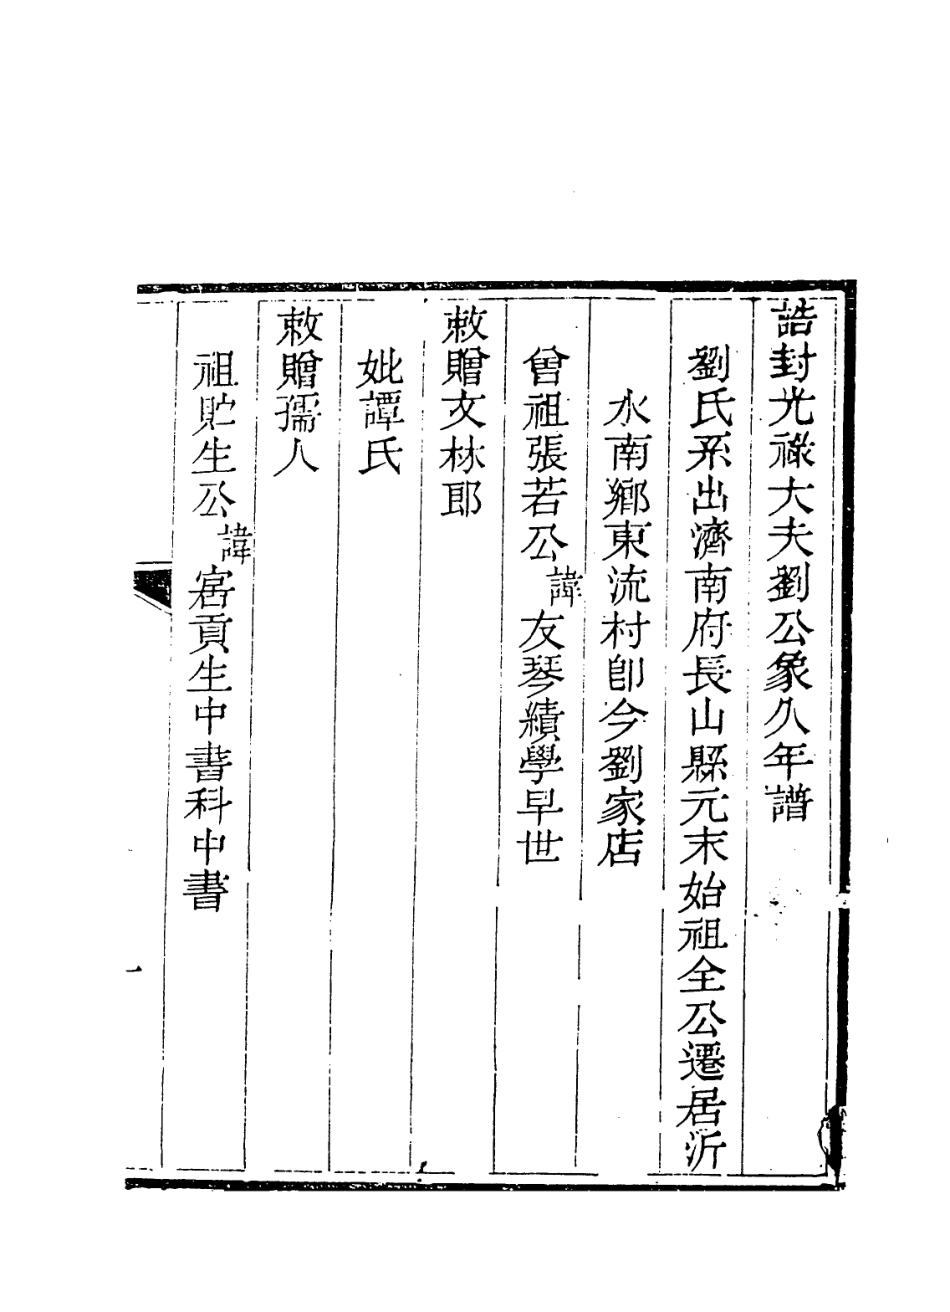 誥封光祿大夫劉公象久年譜
劉氏系出濟南府長山縣元末始祖全公遷居沂
水南鄉東流村卽今劉家店
曾祖張若公諱友琴績學早世
敕贈文林郎
妣譚氏
敕贈孺人
祖貯生公諱寯貢生中書科中書
一